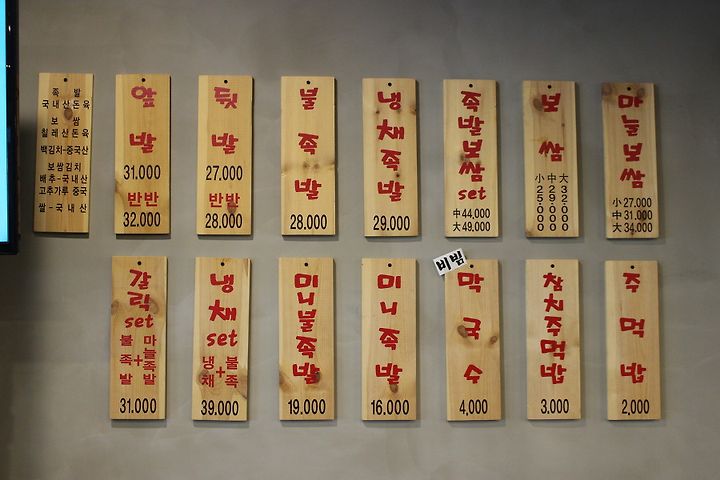 족 발
국내산돈육
보 쌈
칠레산돈육
백김치-중국산
보쌈김치
배추-국내산
고추가루 중국
쌀-국내산
앞발
31.000
반반
32.000
뒷발
27.000
반반
28.000
불족발
28.000
냉채족발
29.000
족발보쌈
set
中 44,000
大 49,000
보쌈
小 25.000
中 29.000
大 32.000
마늘보쌈
小 27.000
中 31.000
大 34.000
갈릭
set
불족발 + 마늘족발
31.000
냉채
set
냉채 + 불족
39.000
미니불족발
19.000
미니족발
16.000
비빔
막국수
4,000
참치주먹밥
3.000
주먹밥
2,000